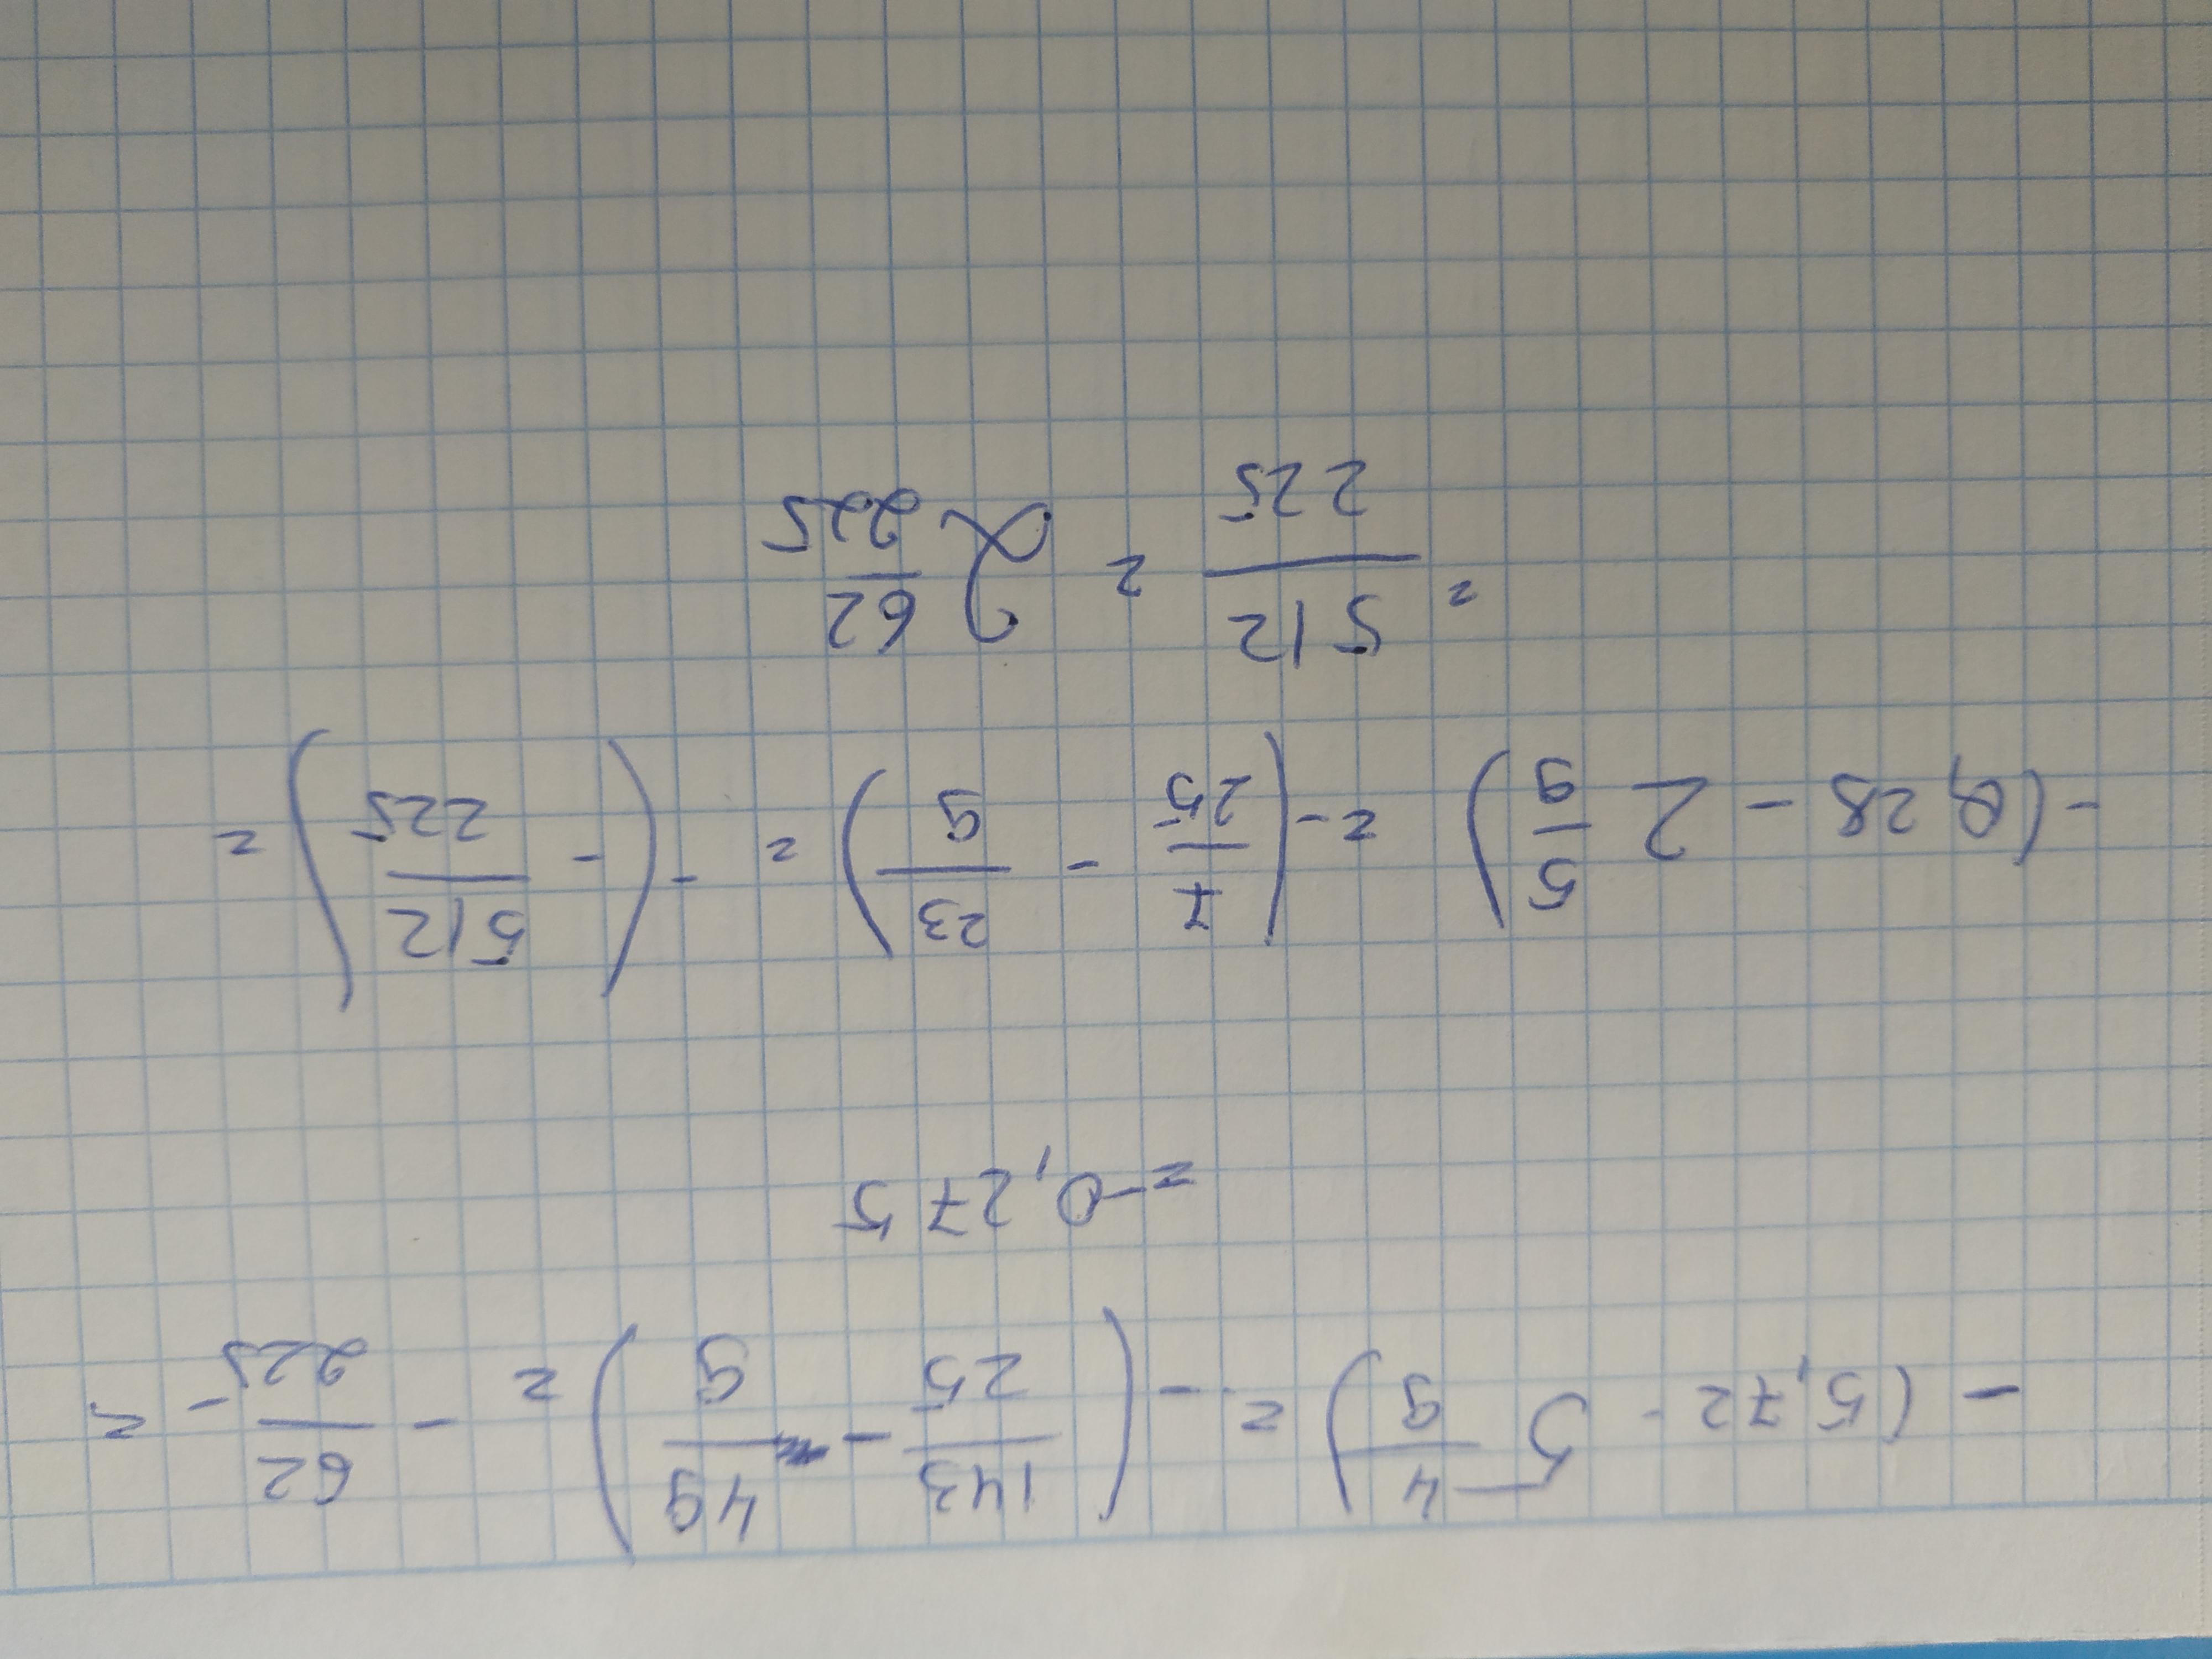 - (5,72 - 5 4/9) = - (143/25 - 49/9) = - 62/225 =
= -0,275
- (0,28 - 2 5/9) = - (7/25 - 23/9) = - (- 512/225) =
= 512/225 = 2 62/225